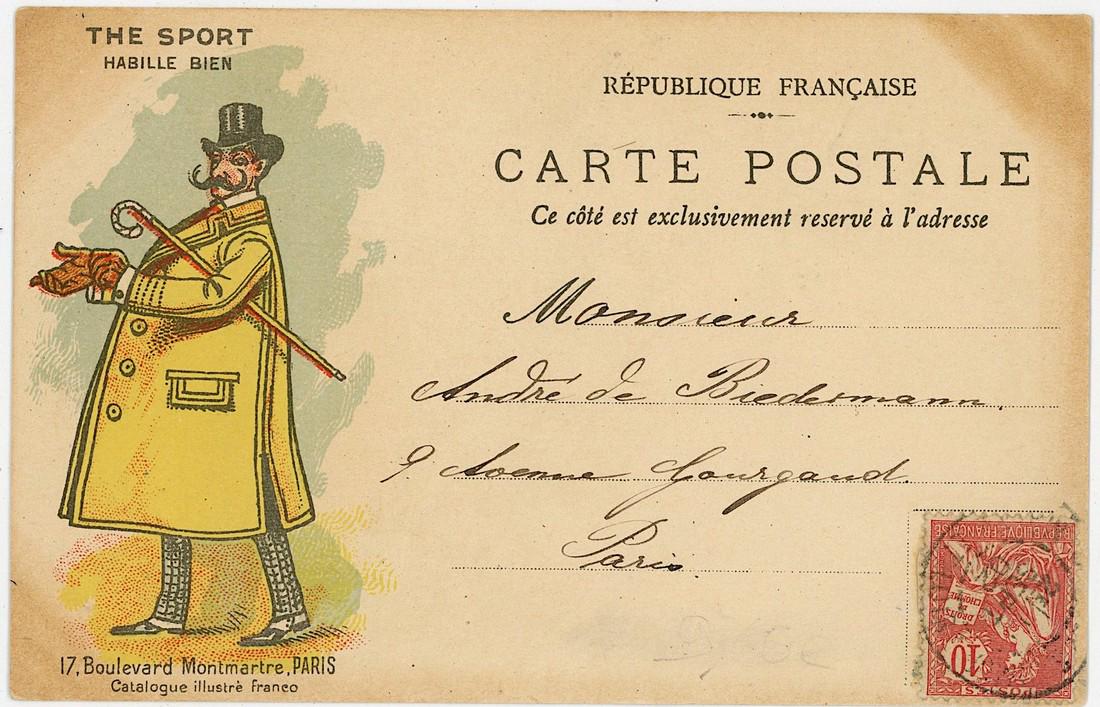 THE SPORT
HABILLE BIEN
RÉPUBLIQUE FRANÇAISE
CARTE POSTALE
Ce côté est exclusivement reservé à l'adresse
Monsieur
André de Biedermann
9 Avenue Gourgaud
Paris
17, Boulevard Montmartre, PARIS
Catalogue illustrè Franco
REPUBLIQUE FRANÇAISE
DROITS
DE
L'HOMME
10
POSTES